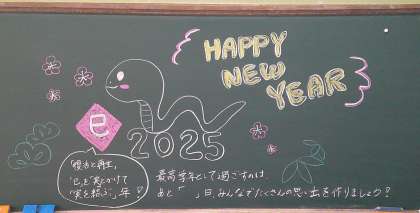 HAPPY
NEW
YEAR
巳
2025
「復活と再生」
「巳」を「実」とかけて
「実を結ぶ」年!
最高学年として過ごすのは、
あと「　」日。みんなでたくさんの思い出を作りましょう!